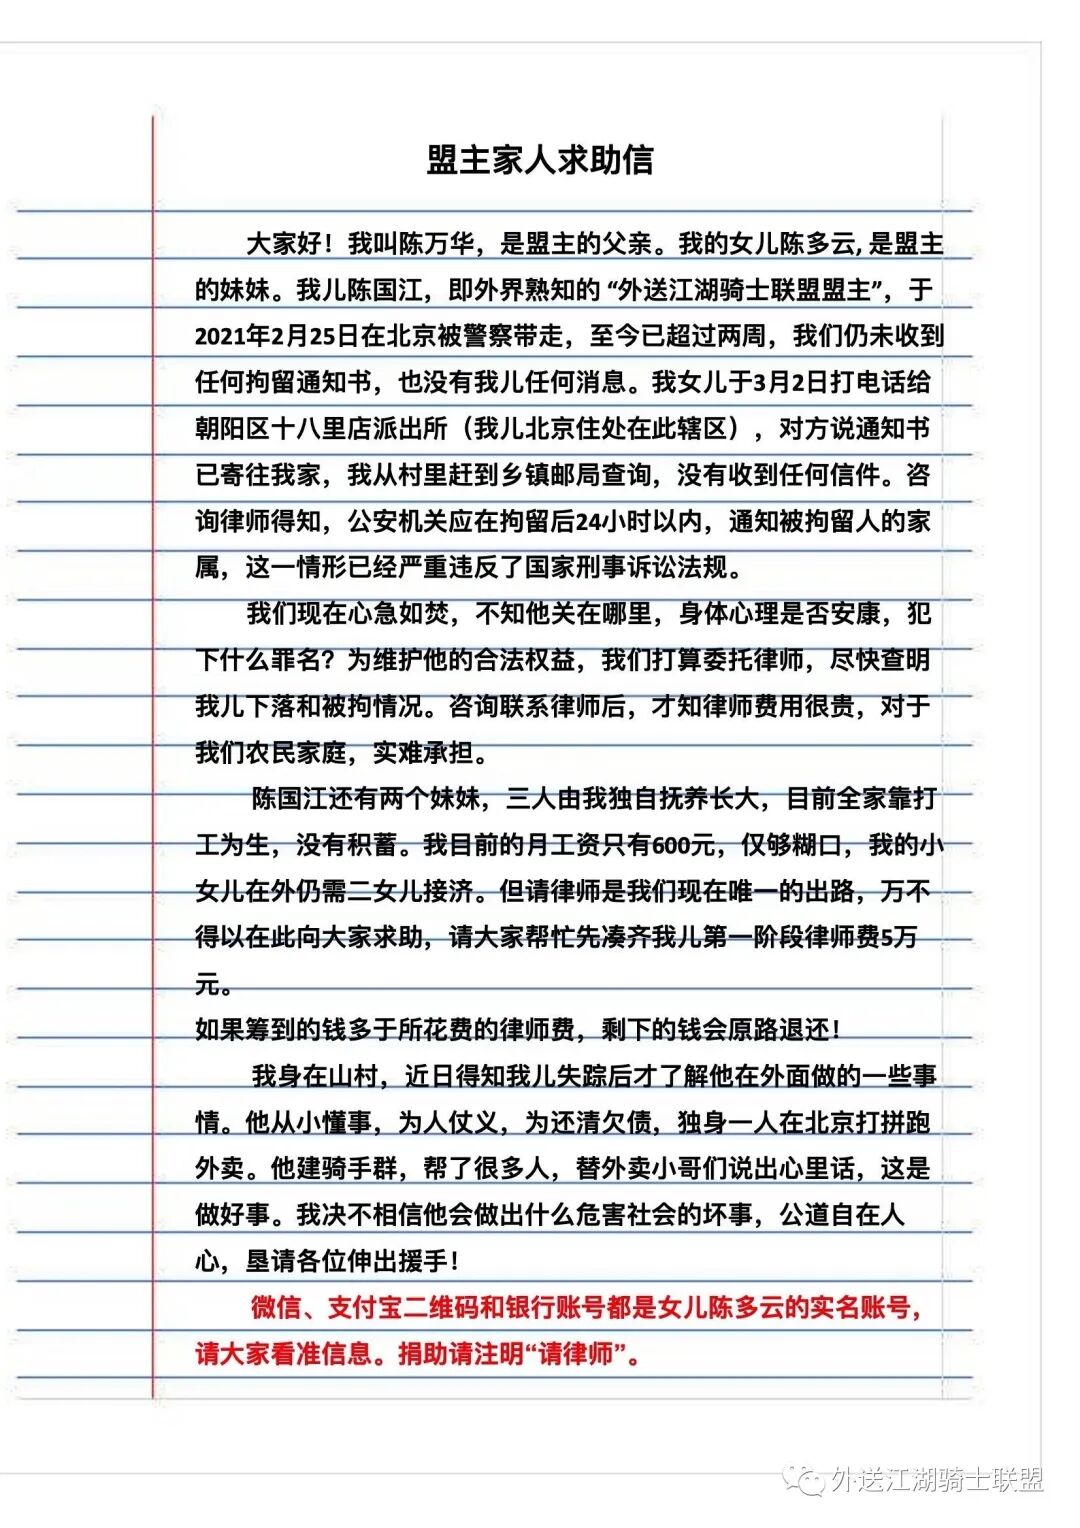 盟主家人求助信
大家好！我叫陈万华，是盟主的父亲。我的女儿陈多云, 是盟主
的妹妹。我儿陈国江，即外界熟知的 “外送江湖骑士联盟盟主”，于
2021年2月25日在北京被警察带走，至今已超过两周，我们仍未收到
任何拘留通知书，也没有我儿任何消息。我女儿于3月2日打电话给
朝阳区十八里店派出所（我儿北京住处在此辖区），对方说通知书
已寄往我家，我从村里赶到乡镇邮局查询，没有收到任何信件。咨
询律师得知，公安机关应在拘留后24小时以内，通知被拘留人的家
属，这一情形已经严重违反了国家刑事诉讼法规。
我们现在心急如焚，不知他关在哪里，身体心理是否安康，犯
下什么罪名？为维护他的合法权益，我们打算委托律师，尽快查明
我儿下落和被拘情况。咨询联系律师后，才知律师费用很贵，对于
我们农民家庭，实难承担。
陈国江还有两个妹妹，三人由我独自抚养长大，目前全家靠打
工为生，没有积蓄。我目前的月工资只有600元，仅够糊口，我的小
女儿在外仍需二女儿接济。但请律师是我们现在唯一的出路，万不
得以在此向大家求助，请大家帮忙先凑齐我儿第一阶段律师费5万
元。
如果筹到的钱多于所花费的律师费，剩下的钱会原路退还！
我身在山村，近日得知我儿失踪后才了解他在外面做的一些事
情。他从小懂事，为人仗义，为还清欠债，独身一人在北京打拼跑
外卖。他建骑手群，帮了很多人，替外卖小哥们说出心里话，这是
做好事。我决不相信他会做出什么危害社会的坏事，公道自在人
心，恳请各位伸出援手！
微信、支付宝二维码和银行账号都是女儿陈多云的实名账号，
请大家看准信息。捐助请注明“请律师”。
外送江湖骑士联盟